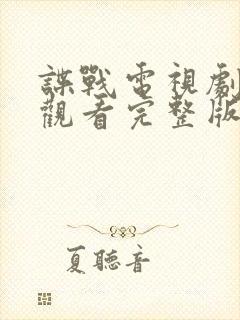 諜戰電視劇
觀看完整版
夏聽音